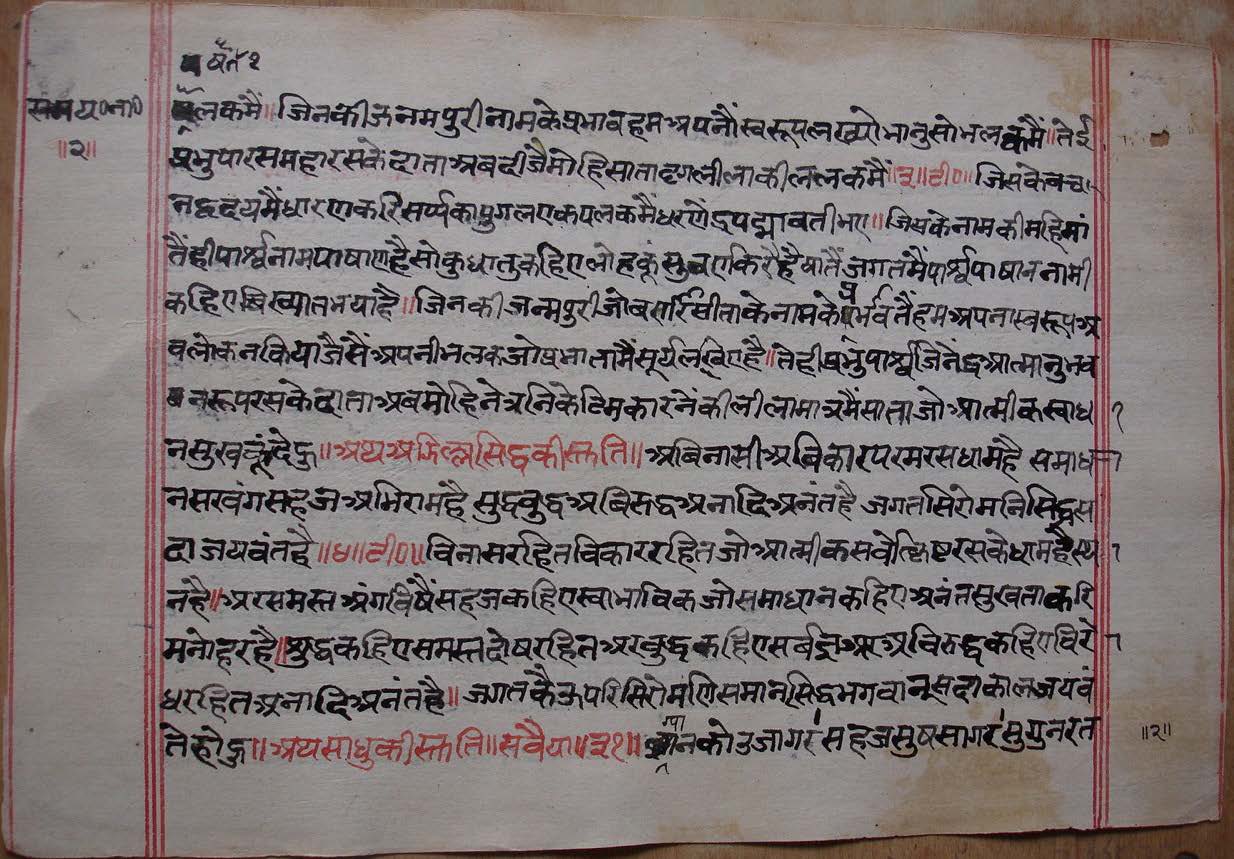 पर्षत १
समय॰ना॰
॥२॥
पलकमैं॥ जिनकी जनमपुरी नामके प्रभाव हम अपनौं स्वरूप लख्यो भानुसो भलकमैं॥ तेई
प्रभु पारस महारसके दाता अब दीजै मोहि साता दृगलीलाकी ललकमैं॥३॥टी॰॥ जिसके वच
न हृदयमैं धारण करि सर्प्पका युगल एक पलकमैं धरणेंद्र पद्मावती भए॥ जिसके नामकी महिमां
तैं ही पार्श्वनाम पाषाण है सो कुधातु कहिए लोहकूं सुवरण करै है यातैं जगतमैं पार्श्व पाषान नामी
कहिए विख्यात भया है॥ जिनकी जन्मपुरी जो बनारसी ताके नामके प्रभावतैं हम अपना स्वरूप अ
वलोकन किया जैसैं अपनी भलक जो प्रभा तामैं सूर्य लखिए है॥ तेही प्रभु पार्श्व जिनेंद्र आत्मानुभव
रूप रसके दाता अब मोहि नेत्रनिके टिमकारनेंकी लीला मात्रमैं साता जो आत्मीक स्वाधी
न सुखकूं देहु॥ अथ अडिल्ल सिद्धकी स्तुति॥ अबिनासी अबिकार परमरसधाम है समाधा
न सरवंग सहज अभिराम है सुद्ध बुद्ध अबिरुद्ध अनादि अनंत है जगत सिरोमनि सिद्ध स
दा जयवंत है॥४॥टी॰॥ विनासरहित विकाररहित जो आत्मीक सर्वोत्कृष्ट रसकै धाम है स्था
न है॥ अर समस्त अंगविषैं सहज कहिए स्वाभाविक जो समाधान कहिए अनंत सुख ताकरि
मनोहर है॥ शुद्ध कहिए समस्त दोषरहित अर बुद्ध कहिए सर्वज्ञ अर अविरुद्ध कहिए विरो
धरहित अनादि अनंत है॥ जगतकै ऊपरि सिरोमणि समान सिद्ध भगवान सदाकाल जयवं
ते होहु॥ अथ साधुकी स्तुति॥ सवैया॥३१॥ ग्यानको उजागर सहज सुषसागर सुगुन रत
॥२॥